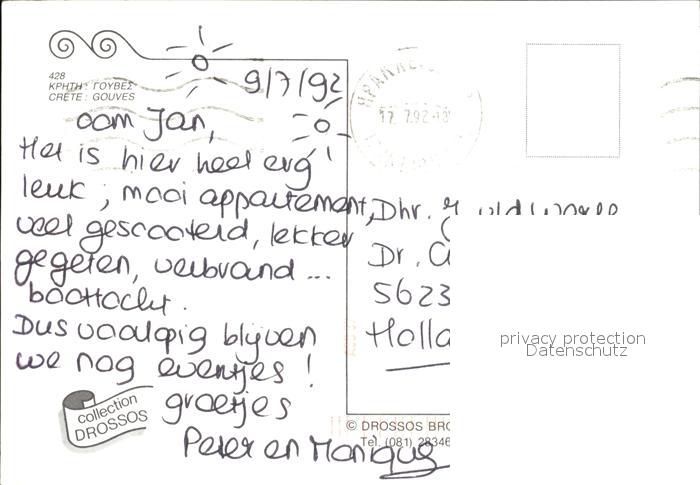 428
ΚΡΗΤΗ : ΓΟΥΒΕΣ
CRETE : GOUVES
9/7/92
oom Jan,
Het is hier heel erg
leuk ; mooi appartement,
veel gescooterd, lekker
gegeten, verbrand ...
boottocht.
Dus voorlopig blijven
we nog eventjes !
groetjes
Peter en Monique
collection
DROSSOS
17.7.92
Dhr.
Dr.
5623
Holla
© DROSSOS BRO
Tel. (081) 28346
privacy protection
Datenschutz